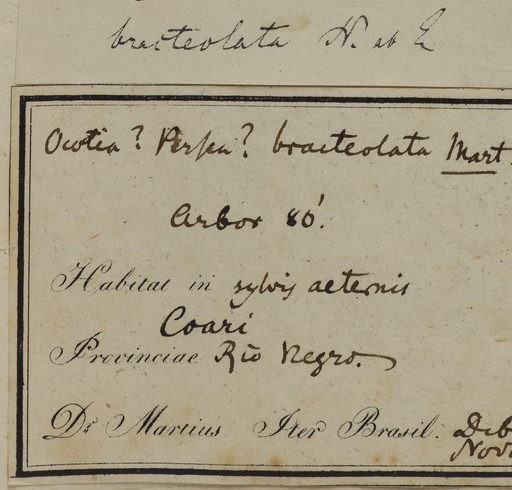 bracteolata N. ab E
Ocotea? Persea? bracteolata Mart.
Arbor 80'.
Habitat in sylvis aeternis
Coari
Provinciae Rio Negro.
Dr. Martius Iter Brasil. Decb
Nov